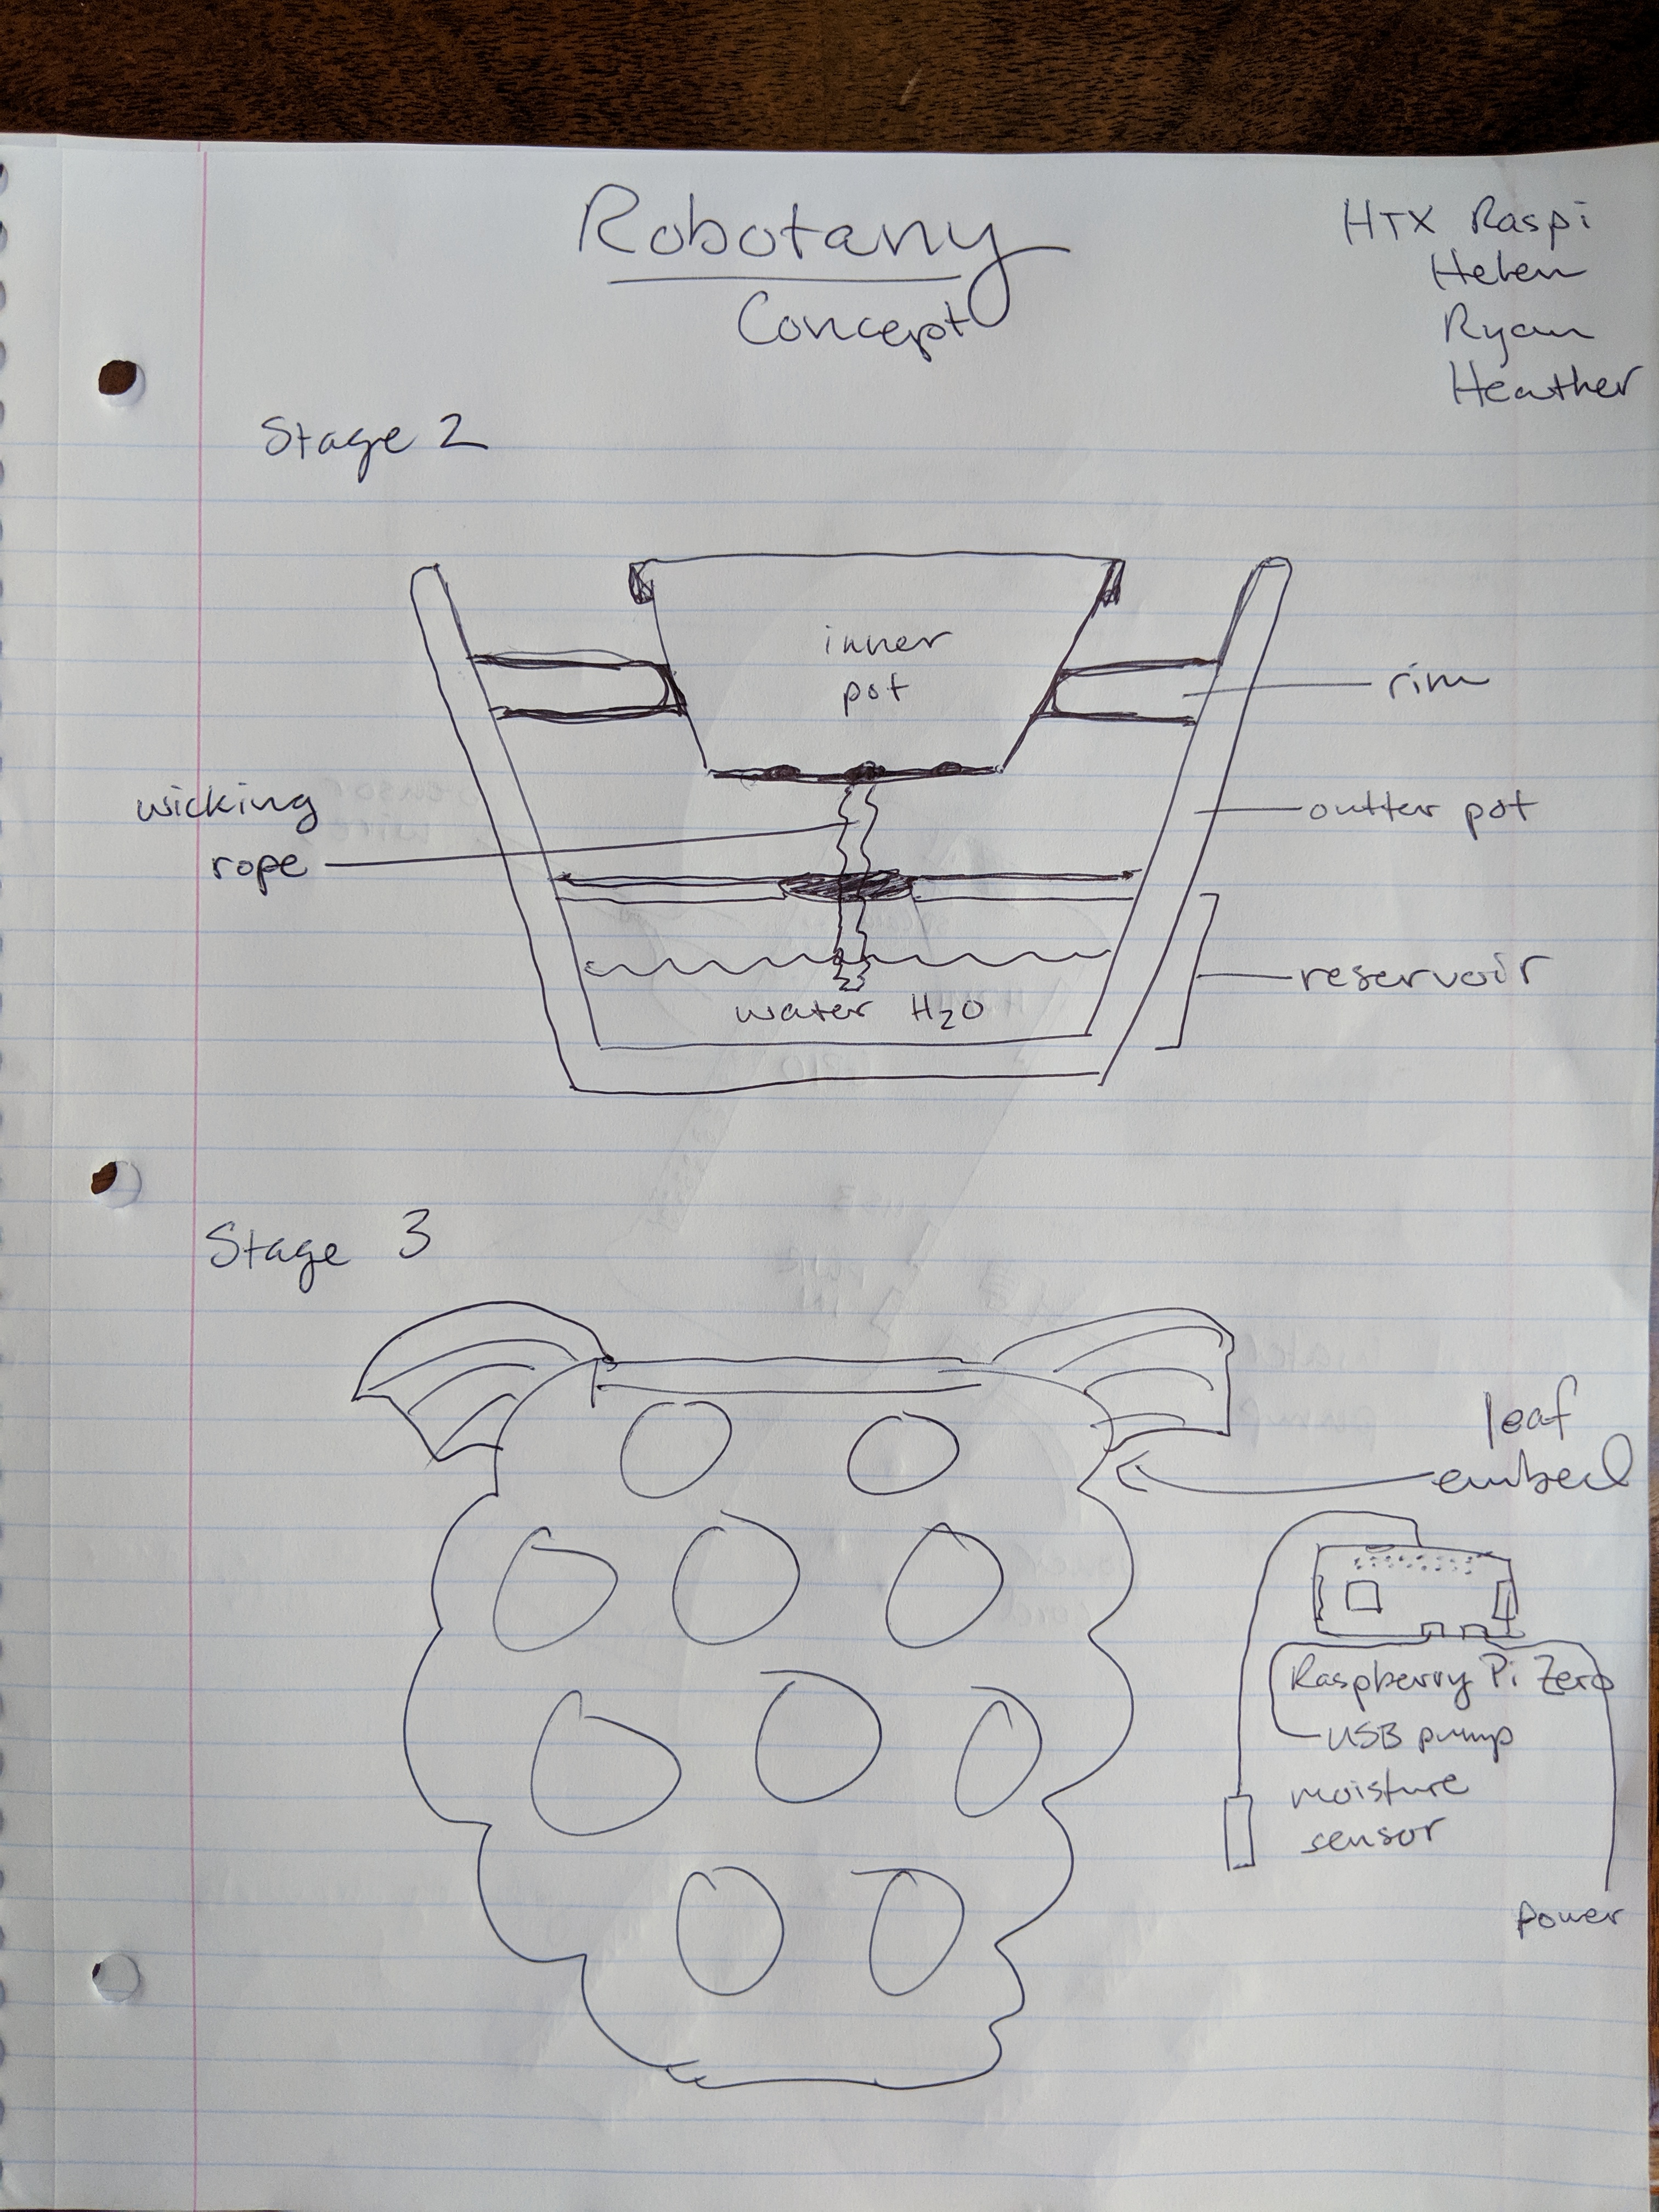 Robotany
Concept
HTX Raspi
Helen
Ryan
Heather
Stage 2
inner
pot
rim
wicking
rope
outter pot
reservoir
water H2O
Stage 3
leaf
embed
Raspberry Pi Zero
USB pump
moisture
sensor
power